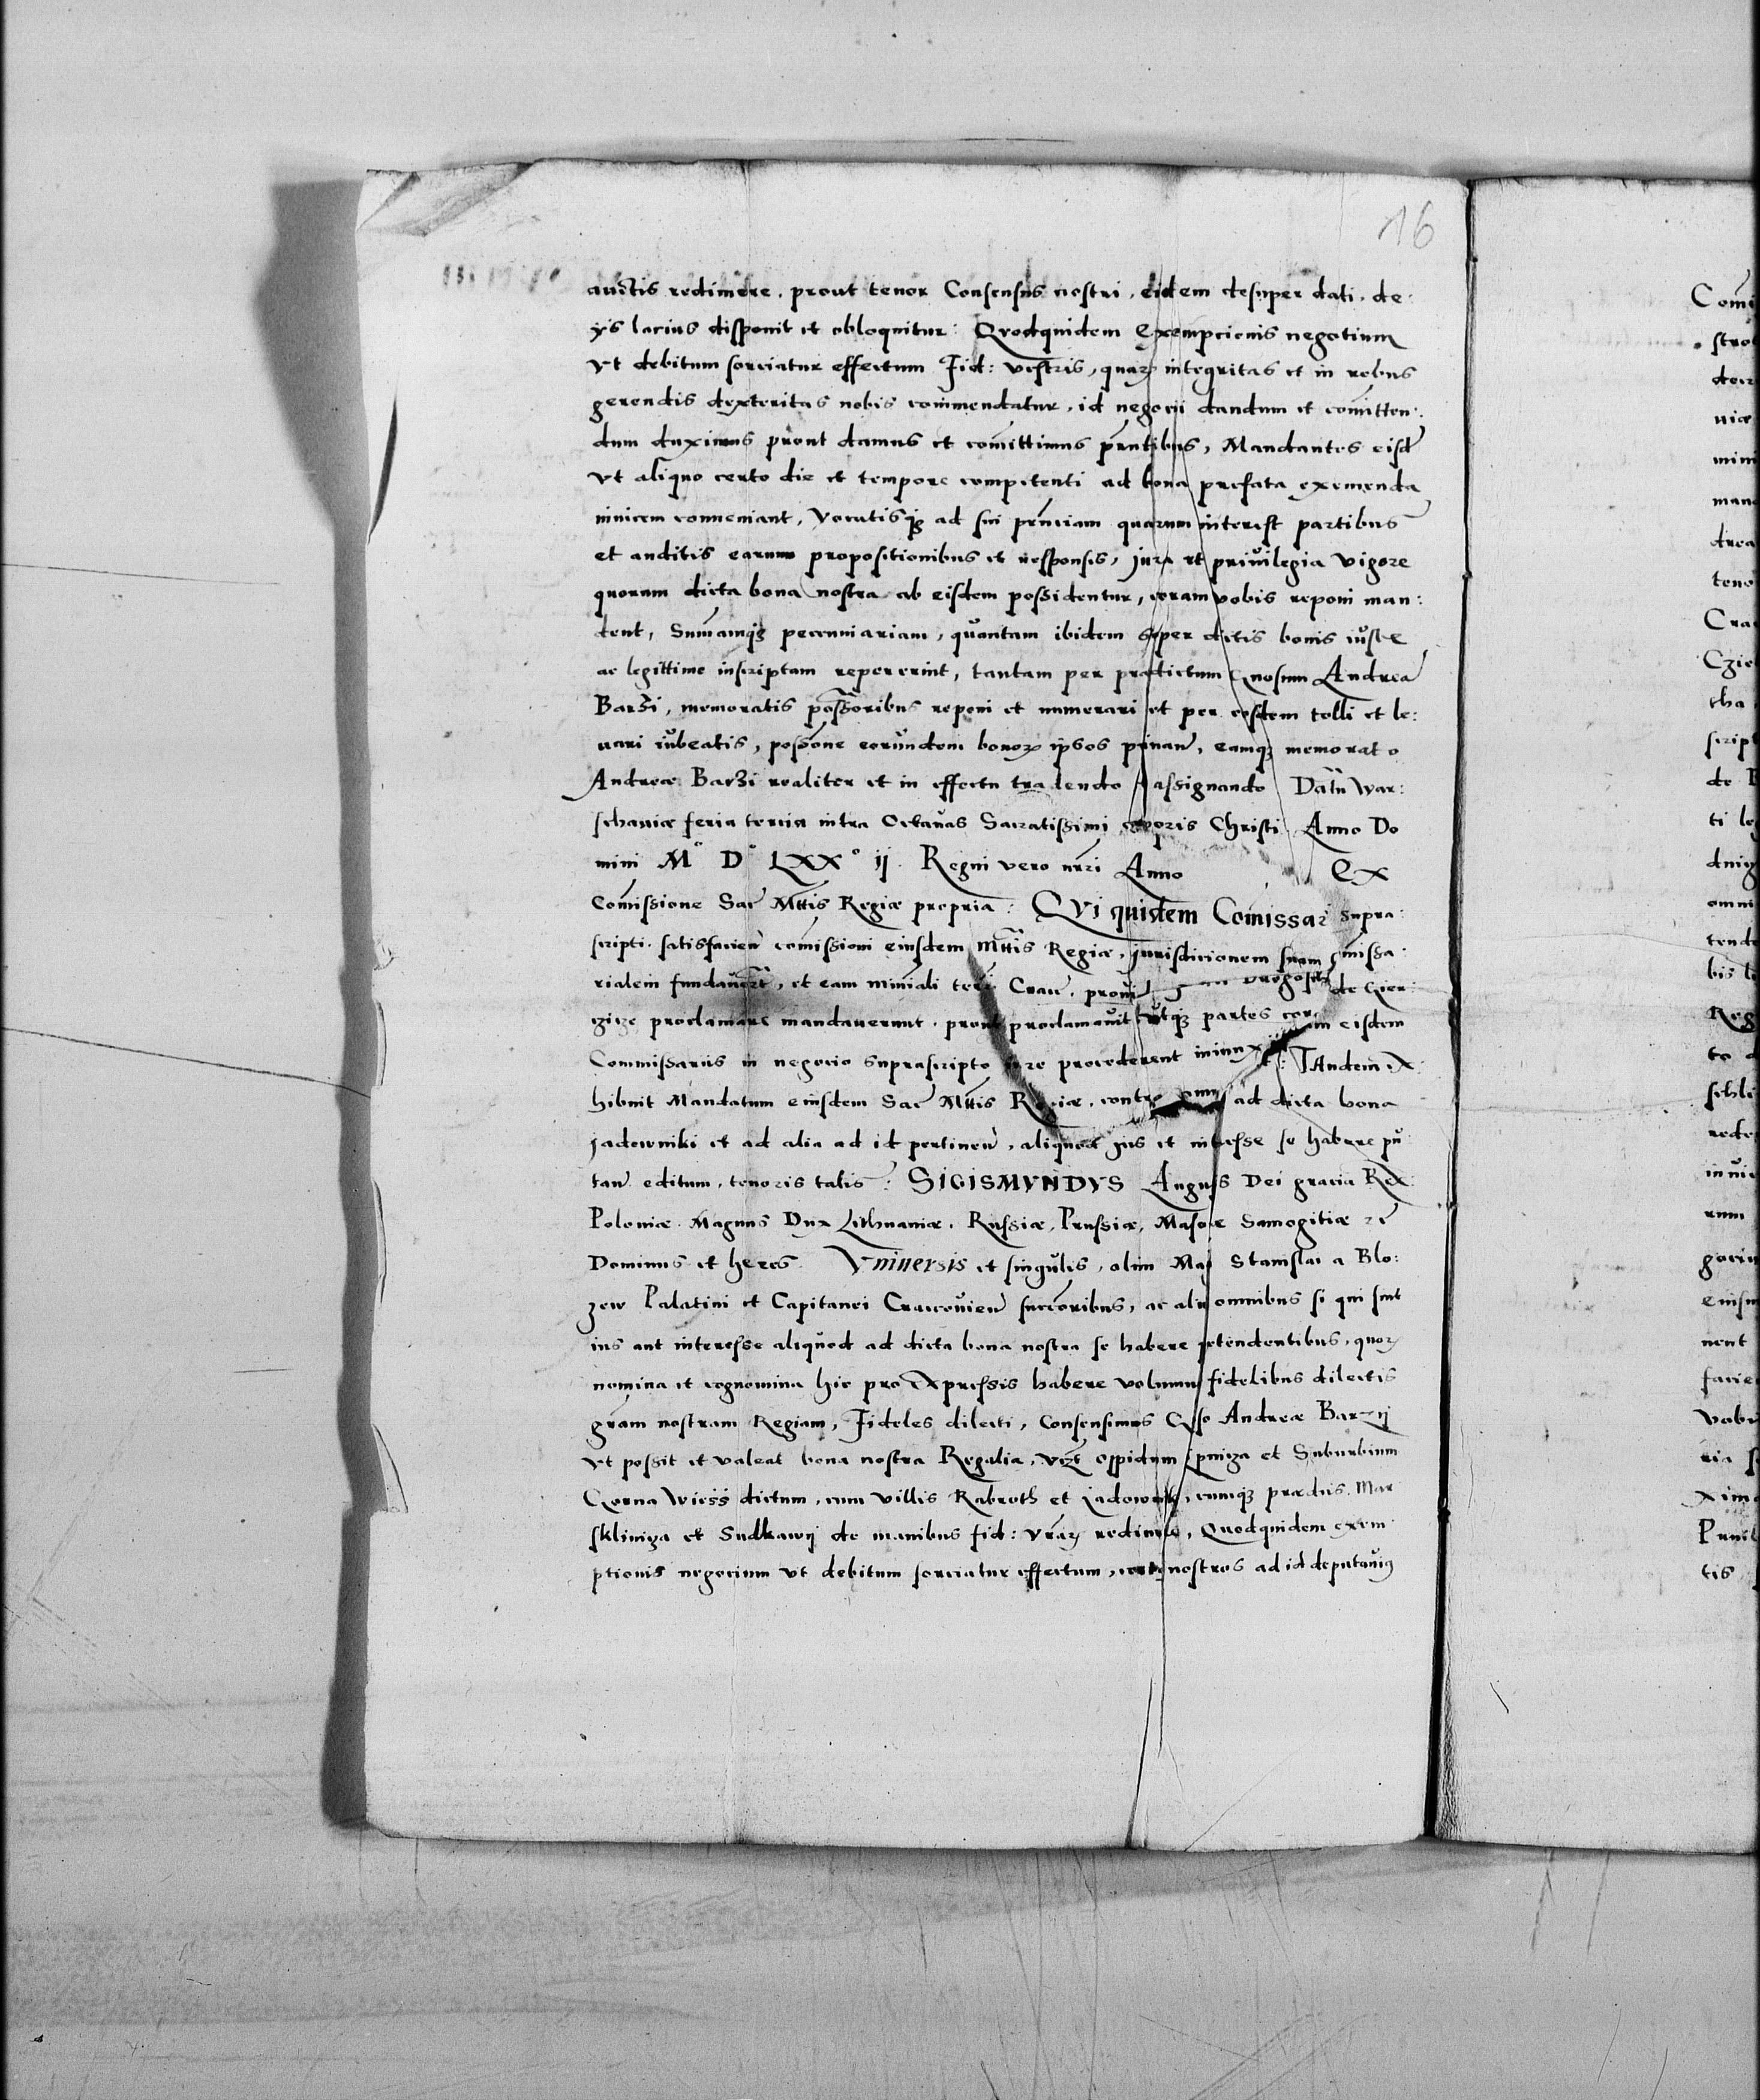 16
auctis redimere, prout tenor Consensus nostri, eidem desuper dati, de
ys lacius disponit et obloquitur: Qvodquidem Exempcionis negotium
vt debitum sorciatur effectum Fid: vestris, quarū integritas et in rebus
gerendis dexteritas nobis commendatur, id negocii dandum et comītten:
dum duximus prout damus et comīttimus pn̄tibus, Mandantes eisdē
vt aliquo certo die et tempore competenti ad bona prefata exemenda
inuicem conueniant, Vocatisq̃ ad sui pn̄ciam quarum interest partibus
et auditis earum propositionibus et responsis, jura et priuilegia vigore
quorum dicta bona nostra ab eisdem possidentur, coram vobis reponi man:
dent, Sum̄amq̃ pecuniariam, quantam ibidem super dictis bonis iuste
ac legittime inscriptam repererint, tantam per predictum Gnosum Andreā
Barzi, memoratis poss̄oribus reponi et numerari et per eosdem tolli et le:
uari iubeatis, poss̄one eorundem bonorū ipsos priuan̄, eamq̃ memorato
Andreæ Barzi realiter et in effectu tradendo assignando Datū War:
schauiæ feria tercia intra Octauas Sacratissimi corporis Christi Anno Do
mini M° D° LXX° ij. Regni vero nr̄i Anno Ex
Comīssione Sac̄ Mt̄tis Regiæ propria: Qvi quidem Comīssar̄ supra:
scripti satisfacien̄ comīssioni eiusdem Mt̄tis Regiæ, jurisdicionem suam com̄issa:
rialem fundauer̄t, et eam minīali Crac̄. de
proclamare mandauerunt, prout proclamauit partes eisdem
Commissariis in negocio suprascripto procederent Tandem ex
hibuit Mandatum eiusdem Sac̄ Mt̄tis Regiæ, contra omnes ad dicta bona
jadowniki et ad alia ad id pertinen̄, aliquod jus et interesse se habere pu
tan̄ editum, tenoris talis: SIGISMVNDVS Augus Dei gracia Rex
Poloniæ Magnus Dux Lithuaniæ, Russiæ, Prussiæ, Masouiæ Samogitiæ zc̄
Dominus et heres. Vniuersis et singulis, olim Stanislai a Blo:
zew Palatini et Capitanei Cracouien̄ succ̄oribus, ac aliis omnibus si qui sunt
ius aut interesse aliquod ad dicta bona nostra se habere p̄tendentibus, quorū
nomina et cognomina hic pro expressis habere volumus fidelibus dilectis
grām nostram Regiam, Fideles dilecti, Consensimus Gn̄so Andreæ Barzij
vt possit et valeat bona nostra Regalia, vizt oppidum Lpnicza et Suburbium
Czorna Wiess dictum, cum villis Rabroth et jadowniki, cumq̃ prædiis, Mar
skliniza et Sudkawij de manibus fid: vrārū redimere, Quodquidem exem
ptionis negocium vt debitum sorciatur effectum, nostros ad id deputauim9